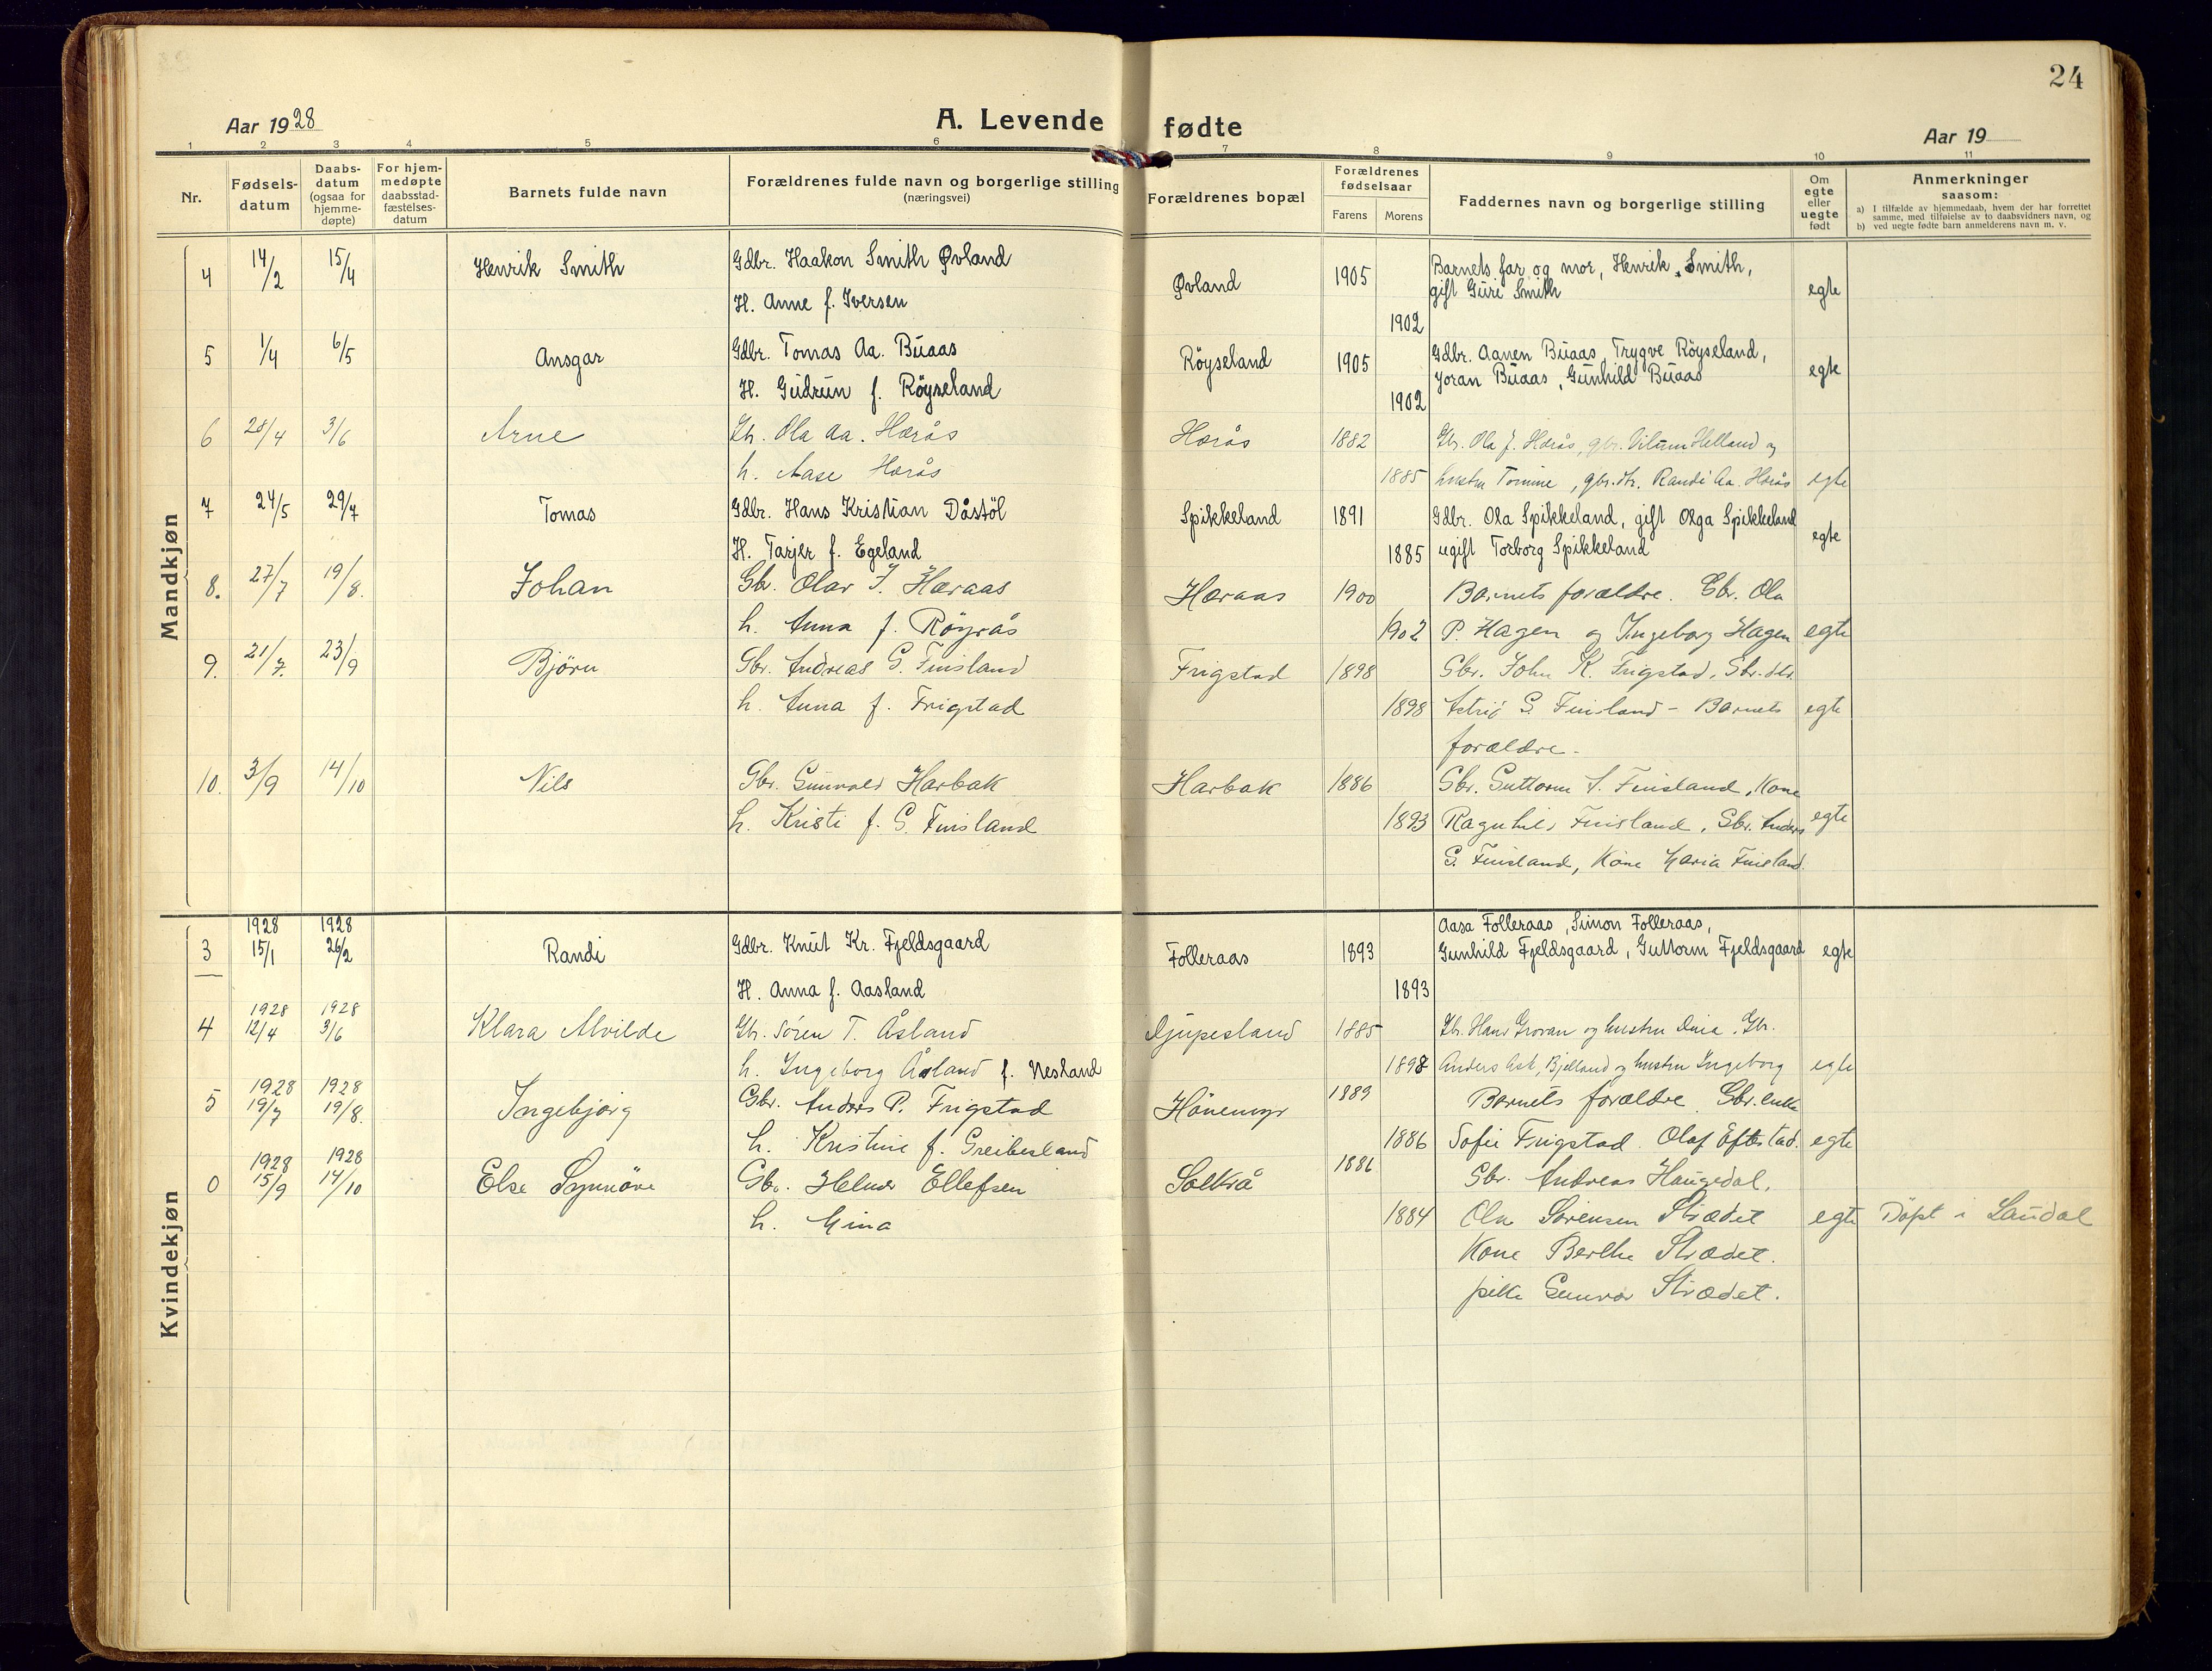 24
Aar 1928
A. Levende fødte
Aar 19
1 2 3 4 5 6 7 8 9 10 11
Nr.
Fødsels-
datum
Daabs-
datum
(ogsaa for
hjemme-
døpte)
For hjem-
medøpte
daabsstad-
fæstelses-
datum
Barnets fulde navn
Forældrenes fulde navn og borgerlige stilling
(næringsvei)
Forældrenes bopæl
Forældrenes
fødselsaar
Farens Morens
Faddernes navn og borgerlige stilling
Om
egte
eller
uegte
født
Anmerkninger
saasom:
a) I tilfælde av hjemmedaab, hvem der har forrettet
samme, med tilføielse av to daabsvidners navn, og
b) ved uegte fødte barn anmelderens navn m. v.
Mandkjøn
4 14/2 15/4 Henrik Smith Gdbr. Haakon Smith Øvland Øvland 1905 Barnets far og mor, Henrik Smith,
H. Anne f. Iversen 1902 gift Guri Smith egte
5 1/4 6/5 Ansgar Gdbr. Tomas Aa. Buaas Röyseland 1905 Gdbr. Aanen Buaas, Trygve Röyseland,
H. Gudrun f. Röyseland 1902 Joran Buaas, Gunhild Buaas egte
6 28/4 3/6 Arne Gbr. Ola Aa. Horås Horås 1882 Gbr. Ola J. Horås, gbr. Vilum Helland og
h. Aase Horås 1885 hustru Tomine, gbr.dtr. Randi Aa. Horås egte
7 24/5 29/7 Tomas Gdbr. Hans Kristian Dåstöl Spikkeland 1891 Gdbr. Ola Spikkeland, gift Olga Spikkeland
H. Tarjer f. Egeland 1885 ugift Torborg Spikkeland egte
8. 27/7 19/8. Johan Gbr. Olav J. Hæraas Hæraas 1900 Barnets forældre. Gbr. Ola
h. Anna f. Röyrås 1902 P. Hagen og Ingeborg Hagen egte
9. 21/7. 23/9 Björn Gbr. Andreas G. Finsland Frigstad 1898 Gbr. John K. Frigstad, Gbr.dtr.
h. Anna f. Frigstad 1898 Astrid G. Finsland - Barnets egte
forældre.
10. 3/9 14/10 Nils Gbr. Gunvald Harbak Harbak 1886 Gbr. Guttorm S. Finsland, Kone
h. Kristi f. G. Finsland 1893 Ragnhild Finsland, Gbr. Anders egte
G. Finsland, Kone Maria Finsland.
Kvindekjøn
1928 1928 Aasa Folleraas, Simon Folleraas,
3 15/1 26/2 Randi Gdbr. Knut Kr. Fjeldsgaard Folleraas 1893 Gunhild Fjeldsgaard, Guttorm Fjeldsgaard egte
H. Anna f. Aasland 1893
1928 1928
4 12/4 3/6 Klara Alvilde Gbr. Sören T. Åsland Djupesland 1885 Gbr. Hans Grovan og hustru Dina. Gbr.
h. Ingeborg Åsland f. Nesland 1898 Anders Ask, Bjelland og hustru Ingeborg egte
1928 1928
5 19/7 19/8. Ingebjørg Gbr. Anders P. Frigstad Hönemyr 1889 Barnets forældre. Gbr. enke
h. Kristine f. Greibesland 1886 Sofie Frigstad. Olaf Eftestad. egte
1928 1928
0 15/9 14/10 Else Synnöve Gbr. Helmer Ellefsen Solkrå 1886 Gbr. Andreas Haugedal,
h. Gina 1884 Ola Sörensen Strædet egte Döpt i Laudal
Kone Berthe Strædet.
pike Gunvor Strædet.